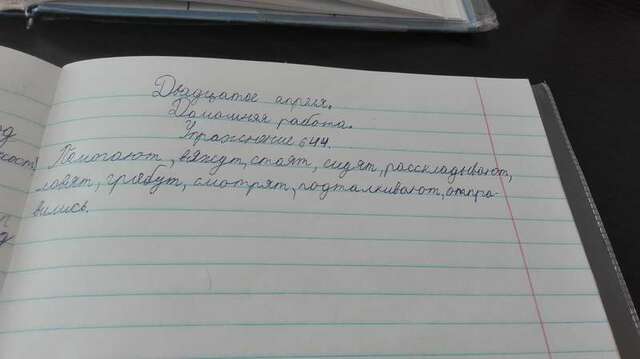 Двадцатое апреля.
Домашняя работа.
Упражнение 644.
Помогают, вяжут, стоят, сидят, расскладывают,
ловят, гребут, смотрят, подталкивают, отпра-
вились.